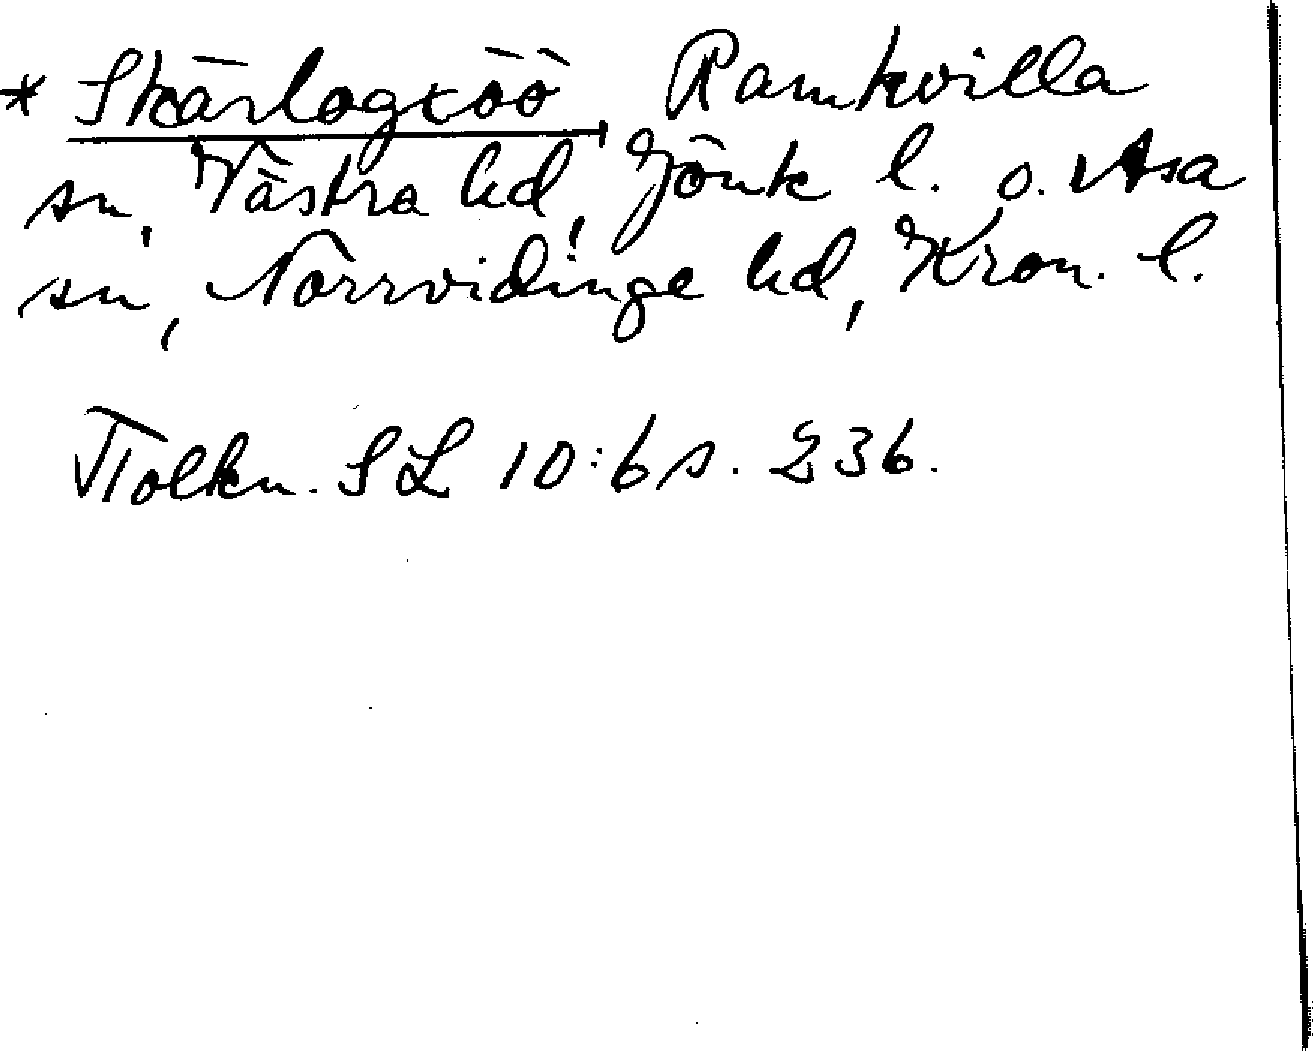 * Skärlogxöö, Ramkvilla
sn, Västra hd, Jönk l. o. Asa
sn, Norrvidinge hd, Kron. l.
Tolkn. SL 10:6 s. 236.